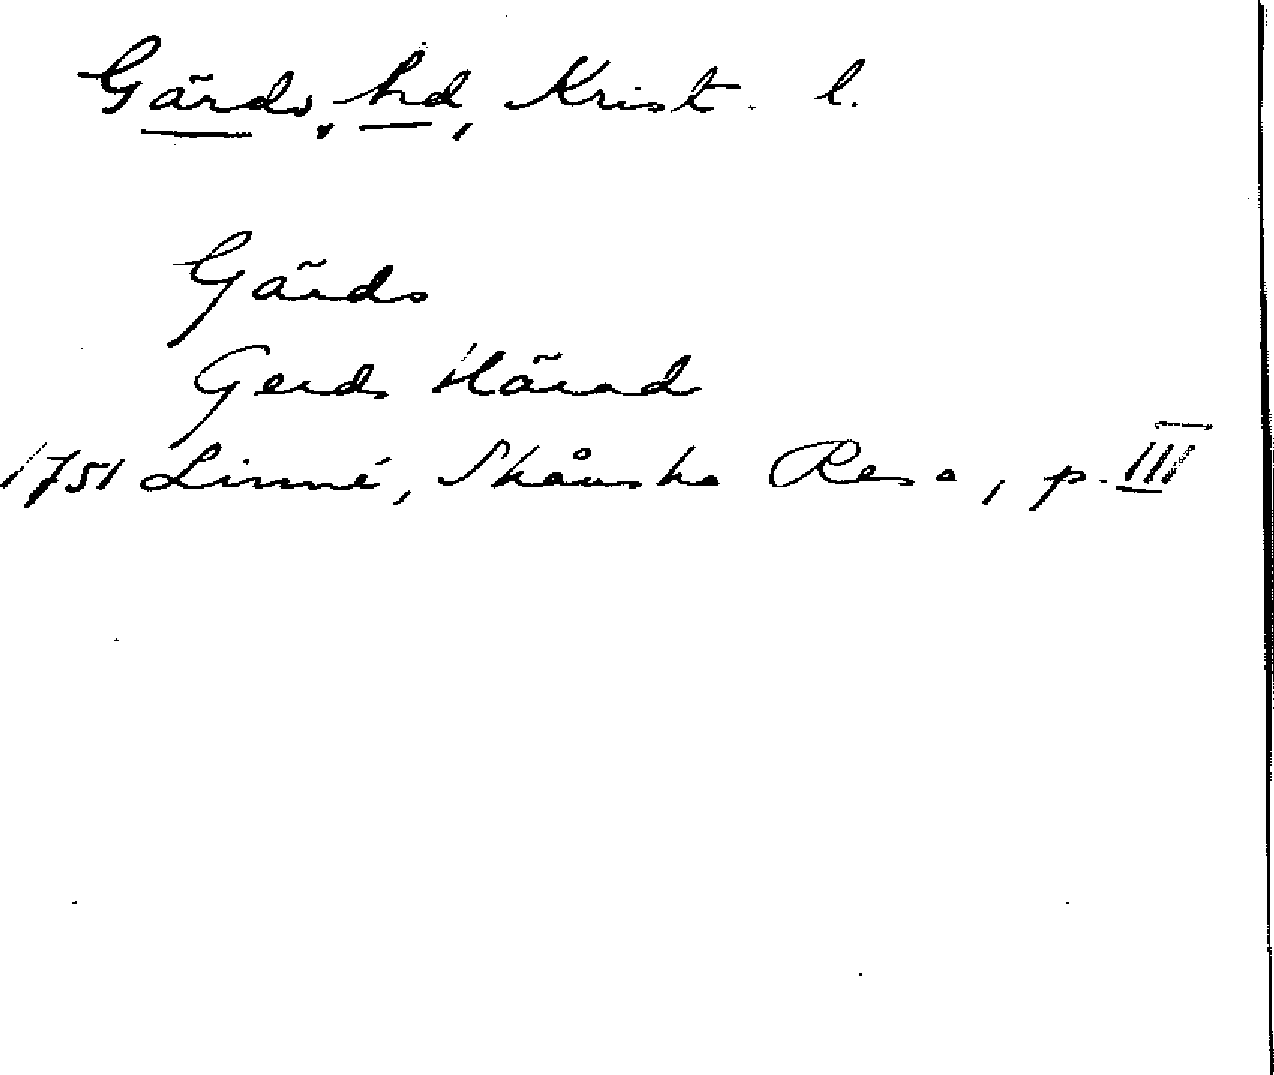 Gärds hd, Krist. l.
Gärds
Gerds Härad
1751 Linné, Skånska Resa, p. III